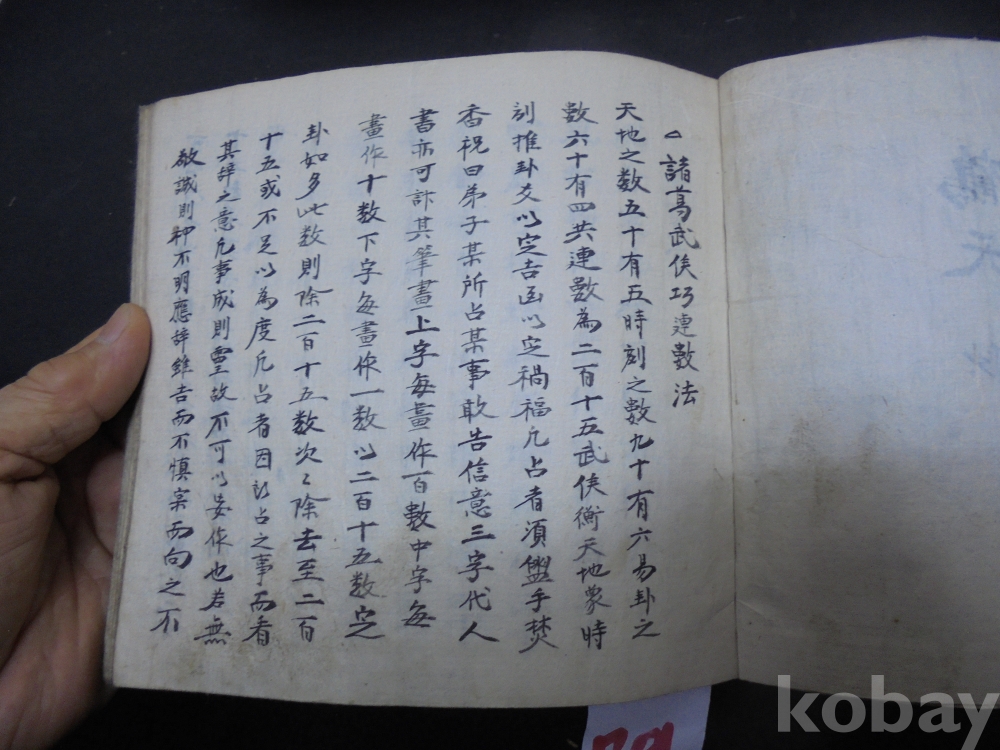 諸葛武侯巧連數法
天地之数五十有五時刻之數九十有六易卦之
數六十有四共連數為二百十五武侯衡天地象時
刻推卦爻以定吉凶以定禍福凡占者須盥手焚
香祝曰弟子某所占某事敢告信意三字代人
書亦可計其筆畫上字每畫作百數中字每
畫作十数下字每畫作一数以二百十五数定
卦如多此数則除二百十五数次〻除去至二百
十五或不足以為度凡占者因所占之事而看
其辞之意凡事成則靈故不可以妄作也若無
敬誠則神不明應辞雖吉而不慎宲而向之不
kobay